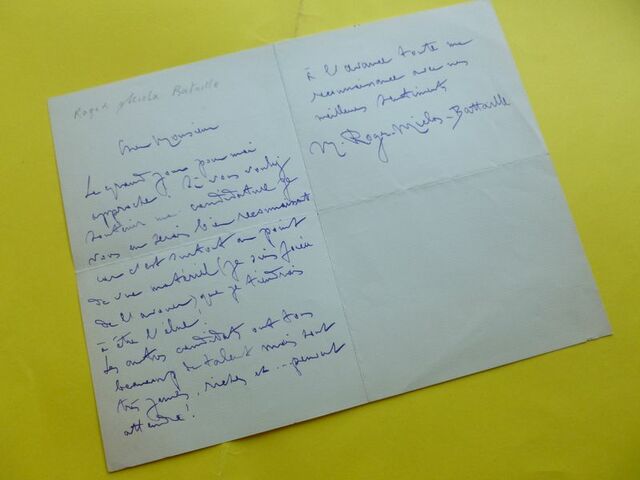 Roger Miclos Bataille
Cher Monsieur
Le grand jour pour moi
approche. Si vous vouliez
soutenir ma candidature je
vous en serais bien reconnaissant
car c'est surtout au point
de vue matériel (je suis forcé
de l'avouer) que je tiendrais
à être l'élu!
Les autres candidats ont tous
beaucoup de talent mais sont
très jeunes, riches et... peuvent
attendre!
à l'avance toute ma
reconnaissance avec mes
meilleurs sentiments
M. Roger-Miclos-Battaille